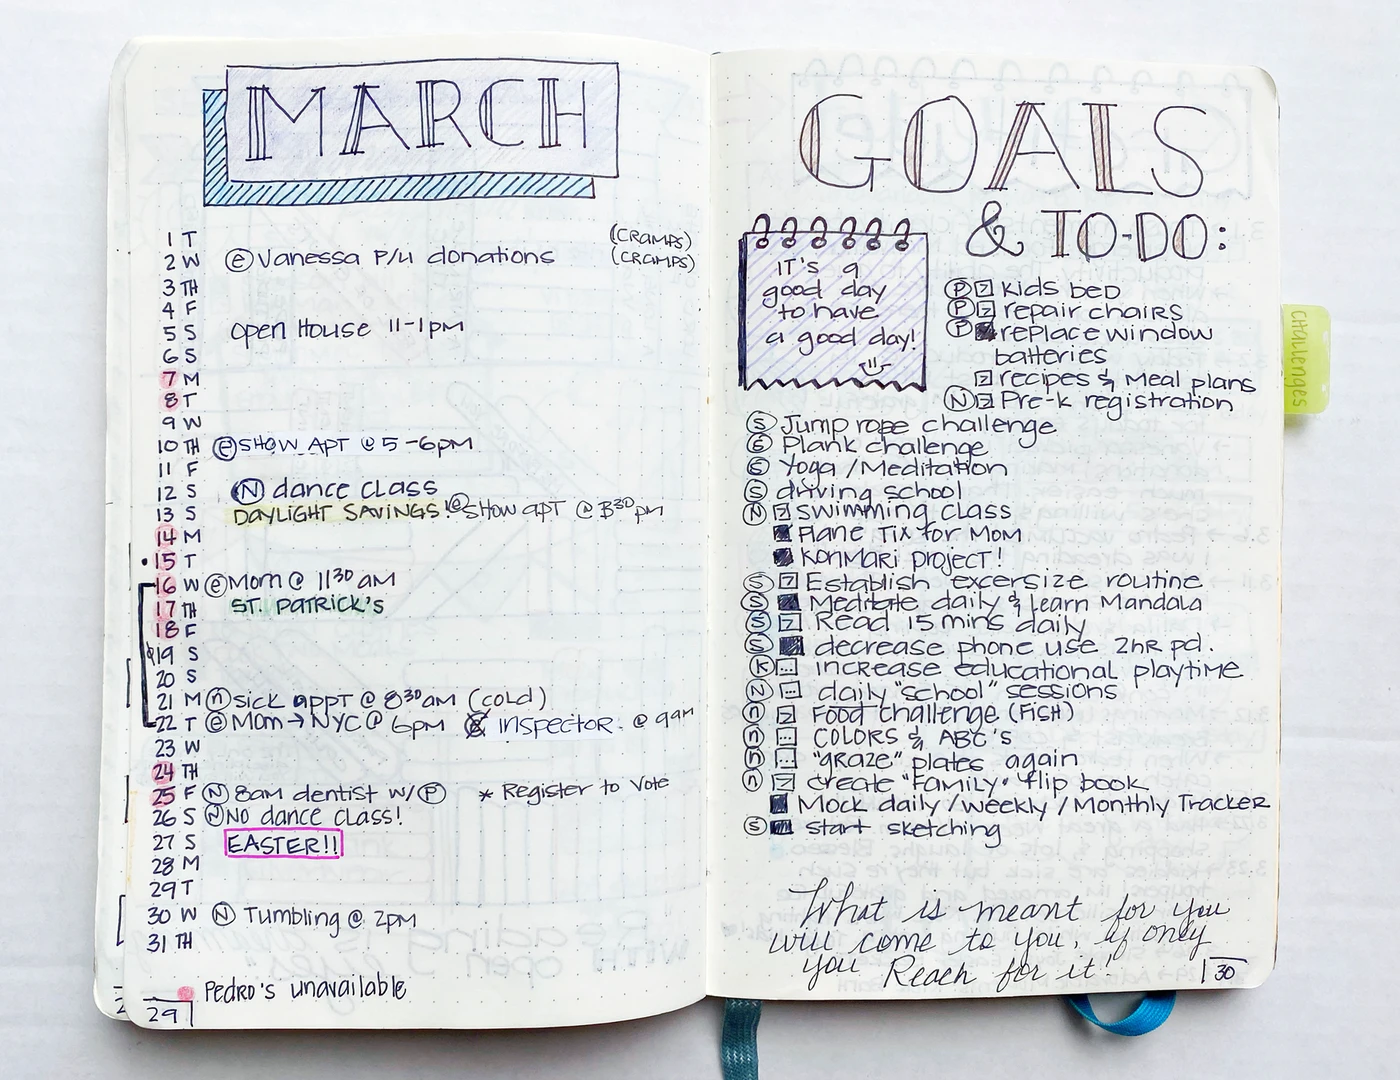 MARCH
1 T (CRAMPS)
2 W e Vanessa P/U donations (CRAMPS)
3 TH
4 F
5 S open House 11-1pm
6 S
7 M
8 T
9 W
10 TH e SHOW APT @ 5-6pm
11 F
12 S N dance class
13 S DAYLIGHT SAVINGS! @ SHOW APT @ 3:30 pm
14 M
15 T
16 W e Mom @ 11:30 AM
17 TH ST. PATRICK'S
18 F
19 S
20 S
21 M n sick appT @ 8:30 am (cold)
22 T e Mom → NYC @ 6pm INSPECTOR @ 9AM
23 W
24 TH
25 F N 8am dentist w/ P * Register to Vote
26 S N NO dance class!
27 S EASTER!!
28 M
29 T
30 W N Tumbling @ 2pm
31 TH
Pedro's unavailable
29
GOALS
& TO-DO:
IT'S a
good day
to have
a good day!
P kids bed
P repair chairs
P replace window
batteries
recipes & Meal plans
N Pre-k registration
S Jump rope challenge
S Plank challenge
S Yoga / Meditation
S driving school
N swimming class
Plane Tix for Mom
KonMari Project!
S Establish excersize routine
S Meditate daily & learn Mandala
S Read 15 mins daily
S decrease phone use 2hr pd.
K increase educational playtime
N daily "school" sessions
n Food challenge (FISH)
n COLORS & ABC's
n "graze" plates again
n create "Family" flip book
Mock daily / weekly / Monthly Tracker
S start sketching
What is meant for you
will come to you, if only
you Reach for it!
30
challenges